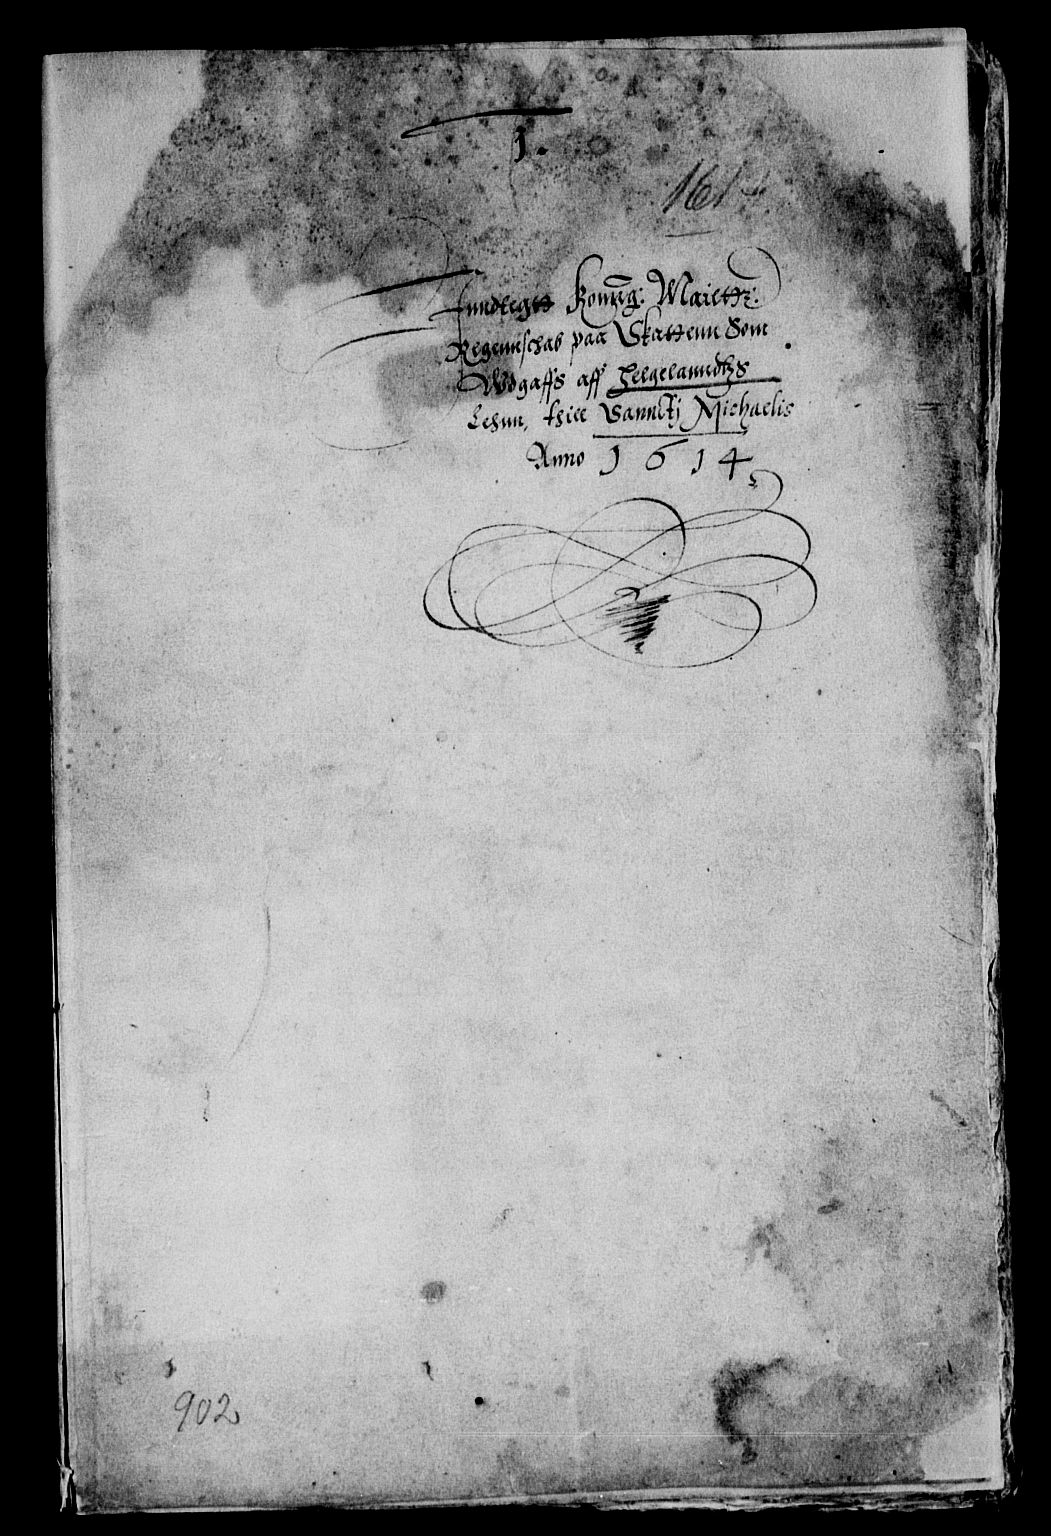 1.
1614
Inndlegtt Konng: Maiettz:
Regennschab paa Skattenn Som
Udgaffs aff Helgelanndtzs
Lehnn, thill Sanncti Michaelis
Anno 1614
902